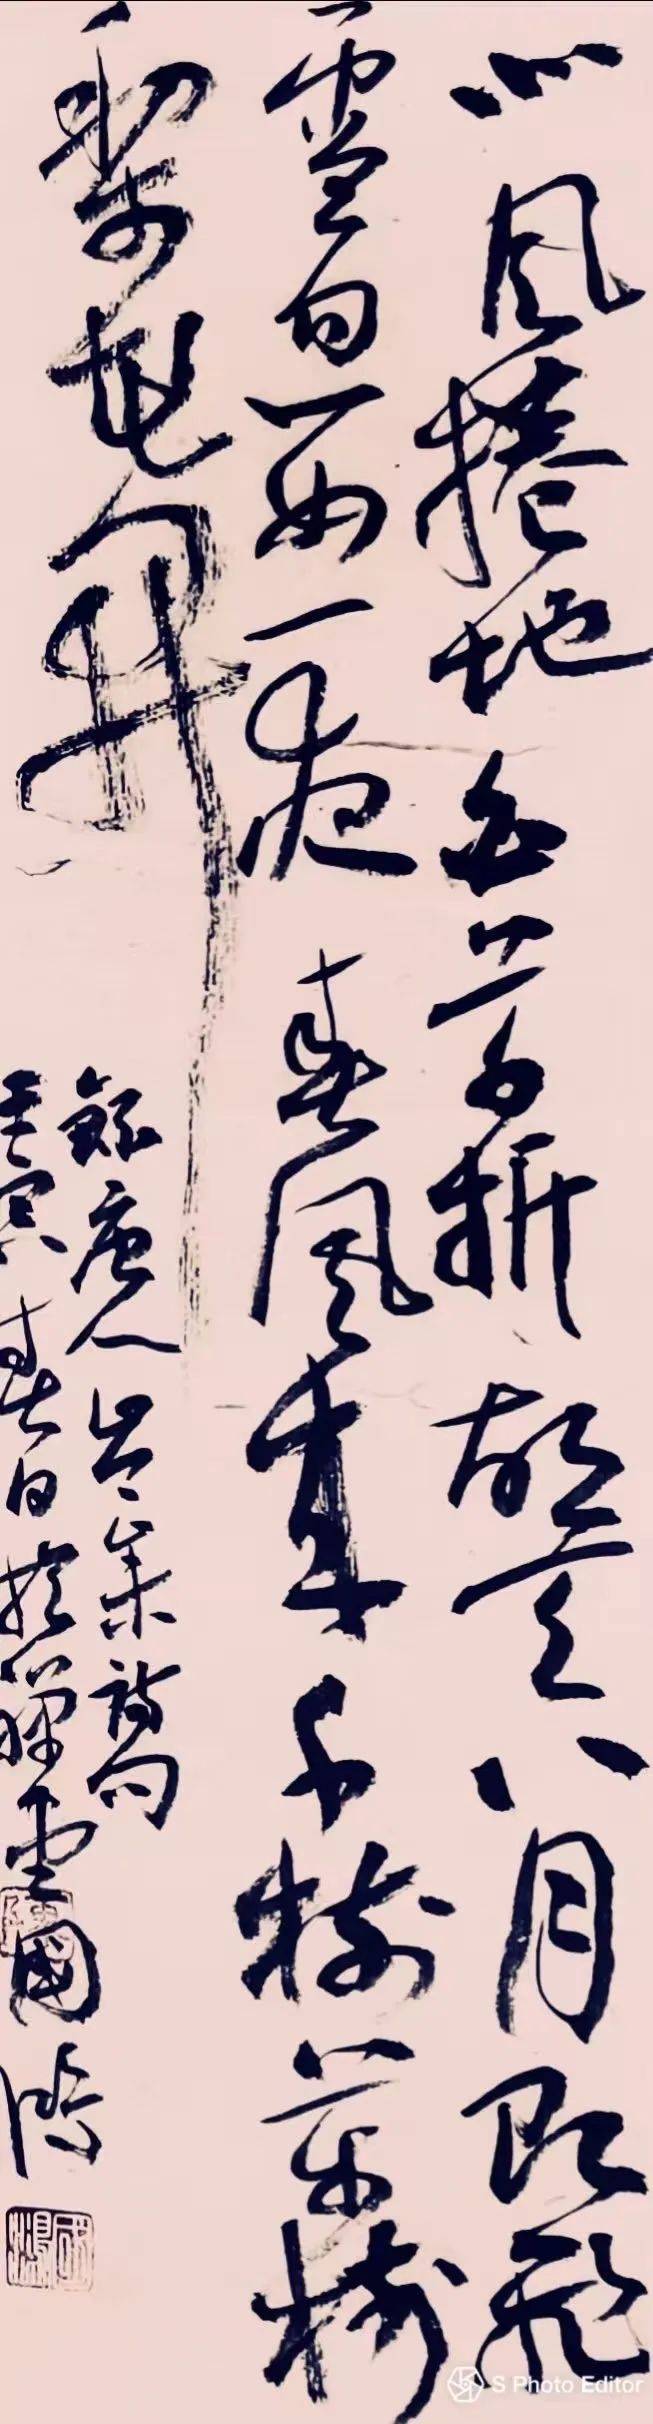 北風捲地白草折胡天八月即飛
雪忽如一夜春風來千樹萬樹
梨花開
錄唐人岑參詩句
春日於禪堂國鴻
國鴻
S Photo Editor